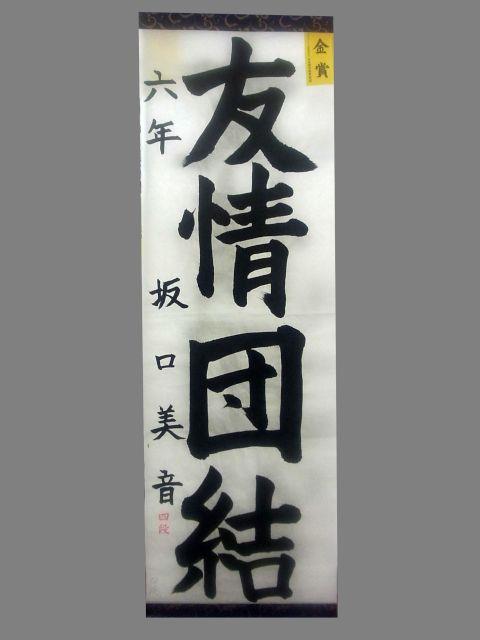 金賞
友情団結
六年 坂口美音
四段